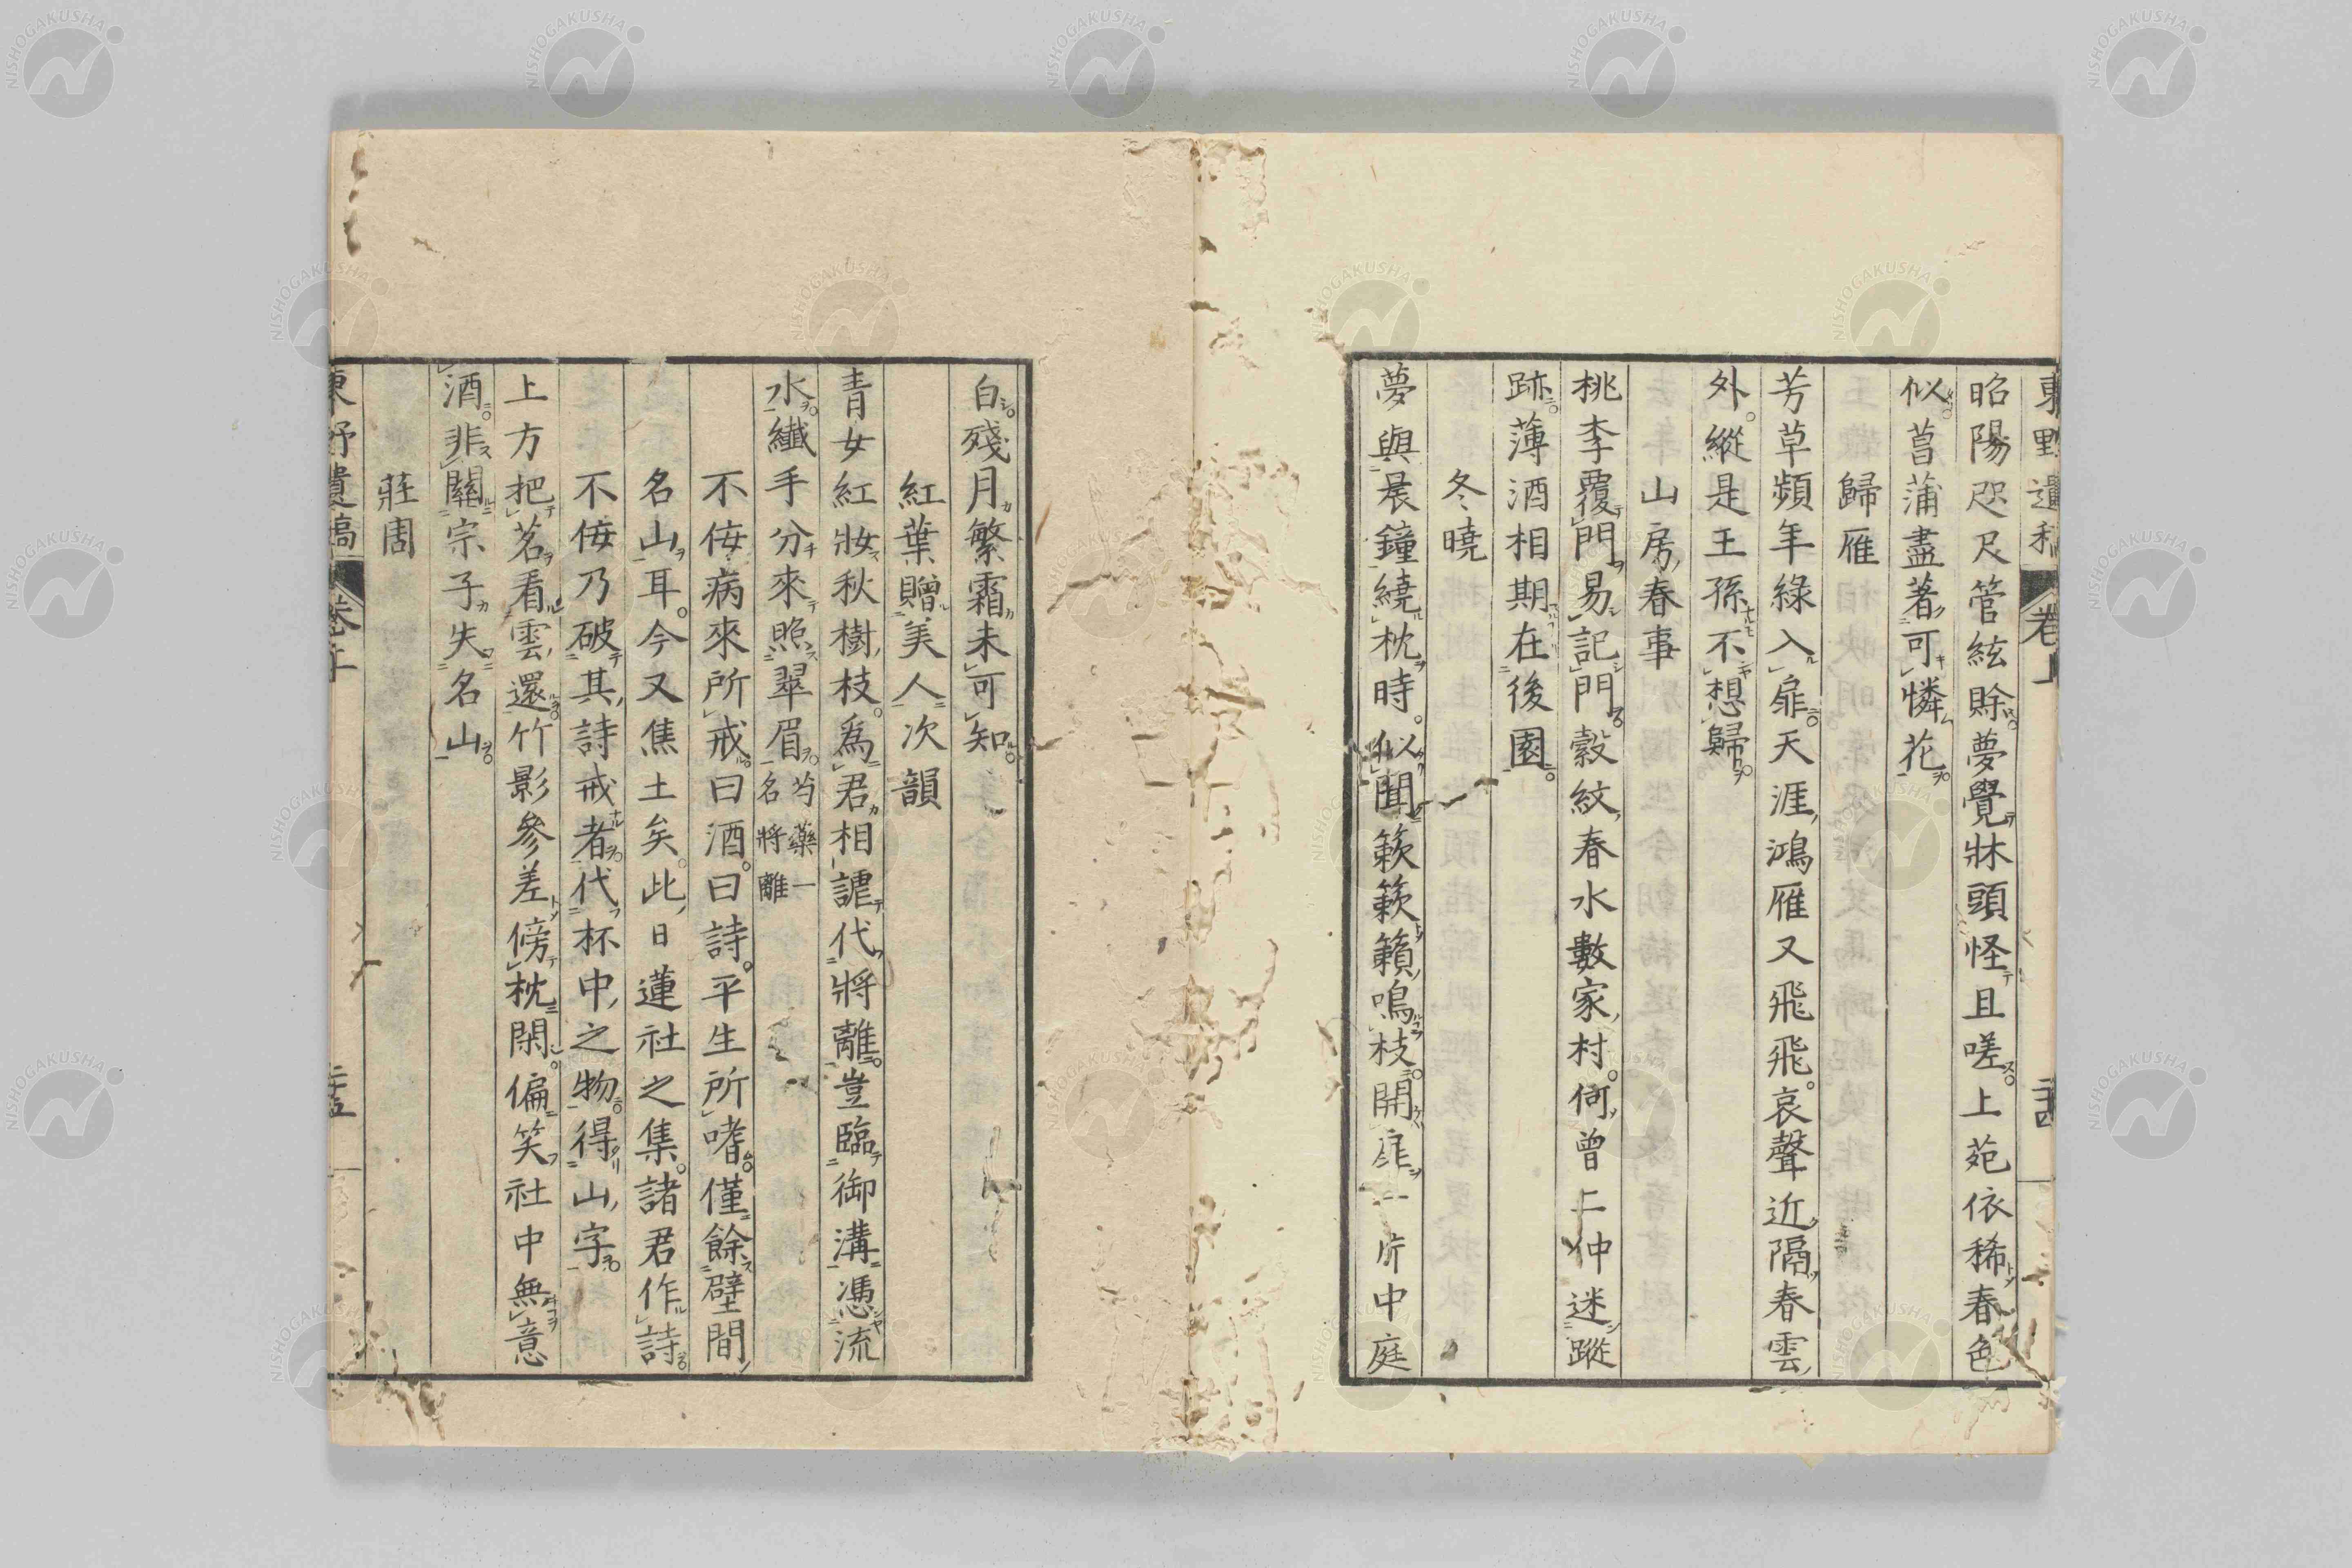 東野遺稿 卷上 二十四
昭陽咫尺管絃賖夢覺牀頭怪且嗟上苑依稀春色
似菖蒲盡著可憐花
歸雁
芳草頻年綠入扉天涯鴻雁又飛飛哀聲近隔春雲
外縱是王孫不想歸
山房春事
桃李覆門易記門縠紋春水數家村何曾上仲迷蹤
跡薄酒相期在後園
冬曉
夢與晨鐘繞枕時似聞簌簌籟鳴枝開扉一片中庭
白殘月繁霜未可知
紅葉贈美人次韻
青女紅妝秋樹枝爲君相謔代將離豈臨御溝憑流
水纖手分來照翠眉 芍藥一名將離
不侫病來所戒曰酒曰詩平生所嗜僅餘壁間
名山耳今又焦土矣此日蓮社之集諸君作詩
不侫乃破其詩戒者代杯中之物得山字
上方把茗看雲還竹影參差傍枕閑偏笑社中無意
酒非關宗子失名山
莊周
東野遺稿 卷上 二十五
NISHOGAKUSHA